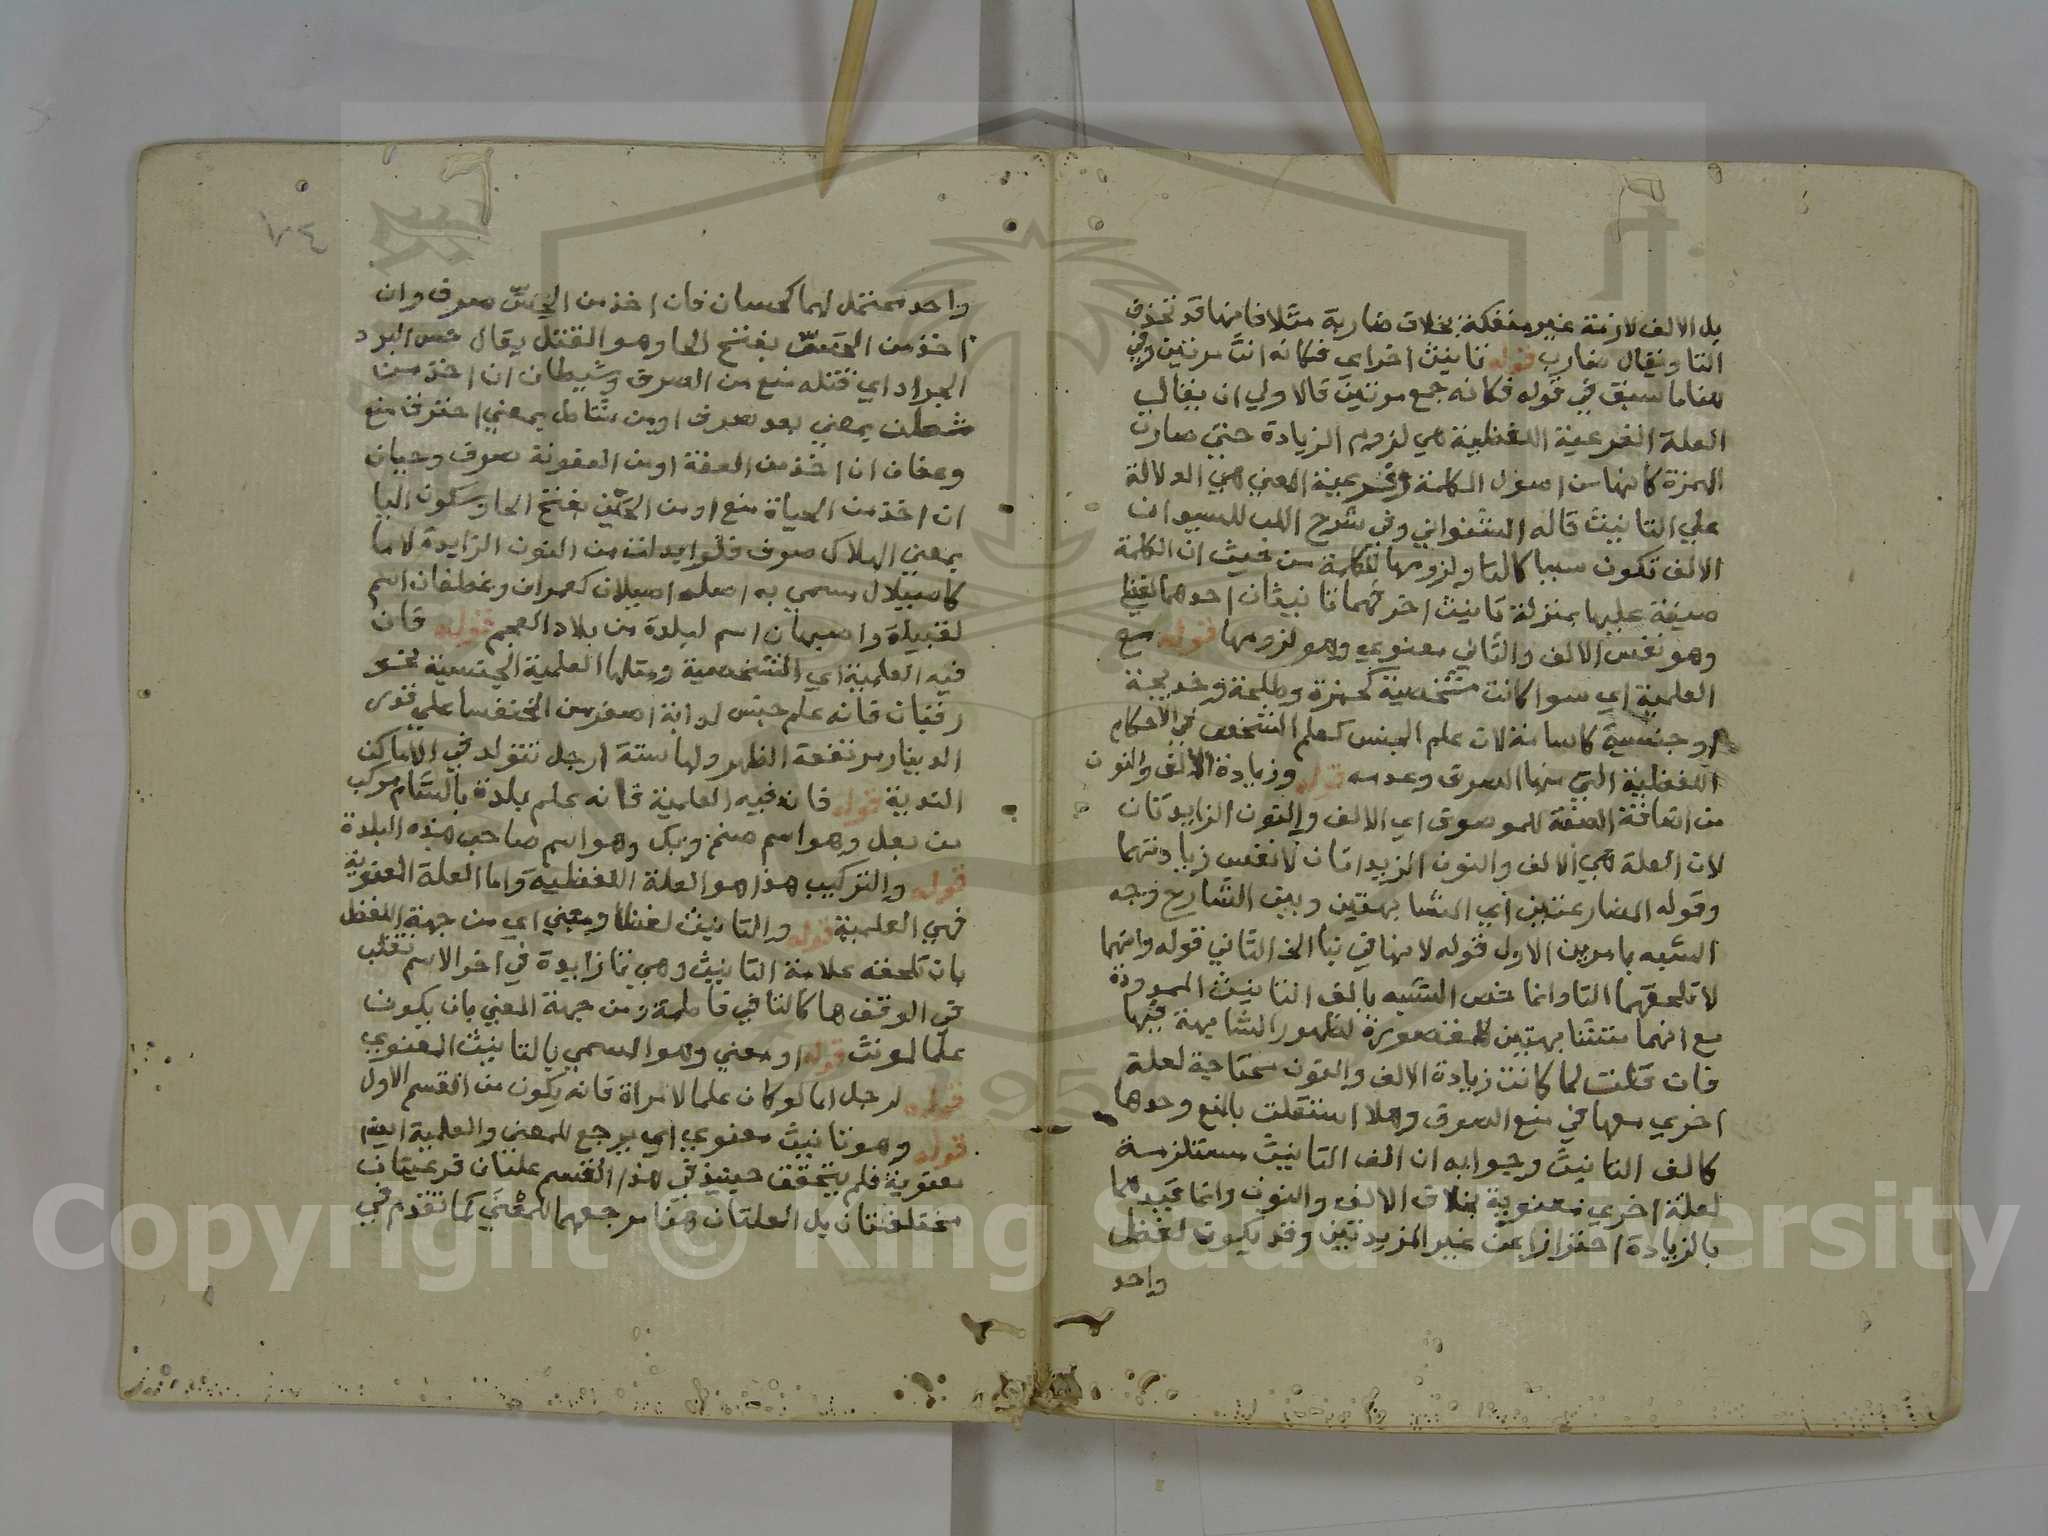 بل الالف لازمة غير منفكة بخلاف ضاربة مثلا فانها قد تحذف
التا ويقال ضارب قوله تانيث اخر اي فكانه انث مرتين وفي
هذا ما سبق في قوله فكانه جمع مرتين فالاولي ان يقال
العلة الفرعية اللفظية هي لزوم الزيادة حتي صارت
الهمزة كانها من اصول الكلمة وفرعية المعني هي الدلالة
علي التانيث قاله الشنواني وفي شرح اللب للسيد ان
الالف تكون سببا كالتا ولزومها للكلمة من حيث ان الكلمة
صيغة عليها بمنزلة تانيث اخر فهما تانيثان احدهما لفظي
وهو نفس الالف والثاني معنوي وهو لزومها قوله مع
العلمية اي سوا كانت شخصية كحمزة وطلحة وخديجة
او جنسية كاسامة لان علم الجنس كعلم الشخص في الاحكام
اللفظية التي منها الصرف وعدمه قوله وزيادة الالف والنون
من اضافة الصفة للموصوف اي الالف والنون الزايدتان
لان العلة هي الالف والنون المزيدتان لا نفس زيادتهما
وقوله المضارعتين اي المشابهتين وبين الشارح وجه
الشبه بامرين الاول قوله لانها في بنا الخ الثاني قوله وانهما
لا تلحقهما التا وانما خص الشبه بالف التانيث الممدودة
مع انهما متشابهتين للمقصورة لظهور المشابهة فيها
فان قلت لما كانت زيادة الالف والنون محتاجة لعلة
اخري معها في منع الصرف وهلا استقلت بالمنع وحدها
كالف التانيث وجوابه ان الف التانيث مستلزمة
لعلة اخري معنوية بخلاف الالف والنون وانما قيدهما
بالزيادة احترازا عن غير المزيدتين وقد يكون لفظ
واحد
٧٤
واحد محتمل لهما كحسان فان اخذ من الحسن صرف وان
اخذ من الحس بفتح الحا وهو القتل يقال حس البرد
الجراد اي قتله منع من الصرف وشيطان ان اخذ من
شطن بمعني بعد صرف او من شاط بمعني احترق منع
وعفان ان اخذ من العفة او من العفونة صرف وحيان
ان اخذ من الحياة منع او من الحين بفتح الحا وسكون اليا
بمعني الهلاك صرف فلو ابدلت من النون الزايدة لاما
كاصيلال مسمي به اصله اصيلان كعمران وغطفان اسم
لقبيلة واصبهان اسم لبلدة من بلاد العجم قوله فان
فيه العلمية اي الشخصية ومثلها العلمية الجنسية نحو
فانه علم جنس لدابة اصغر من الخنفسا علي قدر
الدينار مرتفعة الظهر ولها ستة ارجل تتولد في الاماكن
الندية قوله فان فيه العلمية فانه علم بلدة بالشام مركب
من بعل وهو اسم صنم وبك وهو اسم صاحب هذه البلدة
قوله والتركيب هذا هو العلة اللفظية واما العلة المعنوية
فهي العلمية قوله والتانيث لفظا ومعني اي من جهة اللفظ
بان تلحقه علامة التانيث وهي تا زايدة في اخر الاسم تقلب
في الوقف ها كالتا في فاطمة ومن جهة المعني بان يكون
علما لمونث قوله او معني وهو المسمي بالتانيث المعنوي
قوله لرجل اما لو كان علما لامراة فانه يكون من القسم الاول
قوله وهو تانيث معنوي اي يرجع للمعني والعلمية ايضا
معنوية فلم يتحقق حينيذ في هذا القسم علتان فرعيتان
مختلفتان بل العلتان هنا مرجعهما للمعني كما تقدم في
Copyright © King Saud University
1957